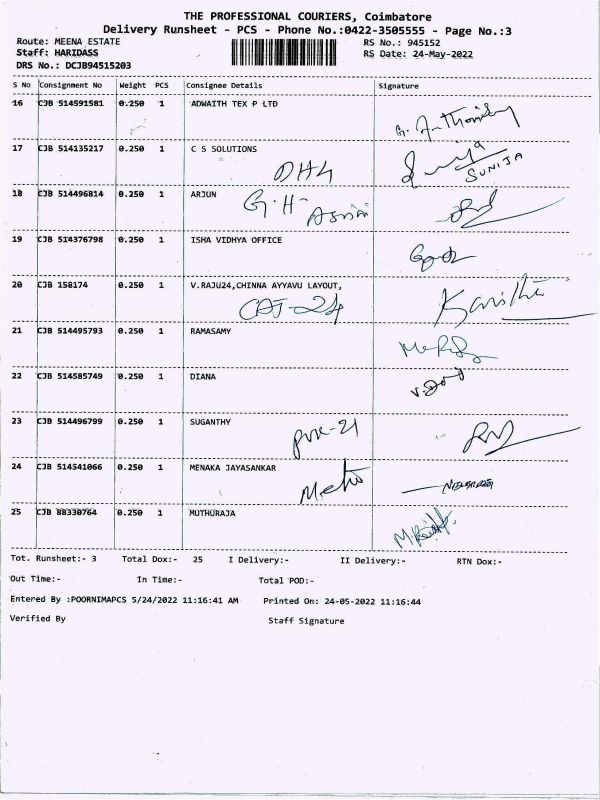 THE PROFESSIONAL COURIERS, Coimbatore
Delivery Runsheet - PCS - Phone No.:0422-3505555 - Page No.:3
Route: MEENA ESTATE RS No.: 945152
Staff: HARIDASS RS Date: 24-May-2022
DRS No.: DCJB94515203
S No Consignment No Weight PCS Consignee Details Signature
16 CJB 514591581 0.250 1 ADWAITH TEX P LTD
17 CJB 514135217 0.250 1 C S SOLUTIONS
SUNIJA
18 CJB 514496814 0.250 1 ARJUN G.H-
19 CJB 514376798 0.250 1 ISHA VIDHYA OFFICE
20 CJB 158174 0.250 1 V.RAJU24,CHINNA AYYAVU LAYOUT,
21 CJB 514495793 0.250 1 RAMASAMY
22 CJB 514585749 0.250 1 DIANA
23 CJB 514496799 0.250 1 SUGANTHY
24 CJB 514541066 0.250 1 MENAKA JAYASANKAR
25 CJB 88330764 0.250 1 MUTHURAJA
Tot. Runsheet:- 3 Total Dox:- 25 I Delivery:- II Delivery:- RTN Dox:-
Out Time:- In Time:- Total POD:-
Entered By :POORNIMAPCS 5/24/2022 11:16:41 AM Printed On: 24-05-2022 11:16:44
Verified By Staff Signature